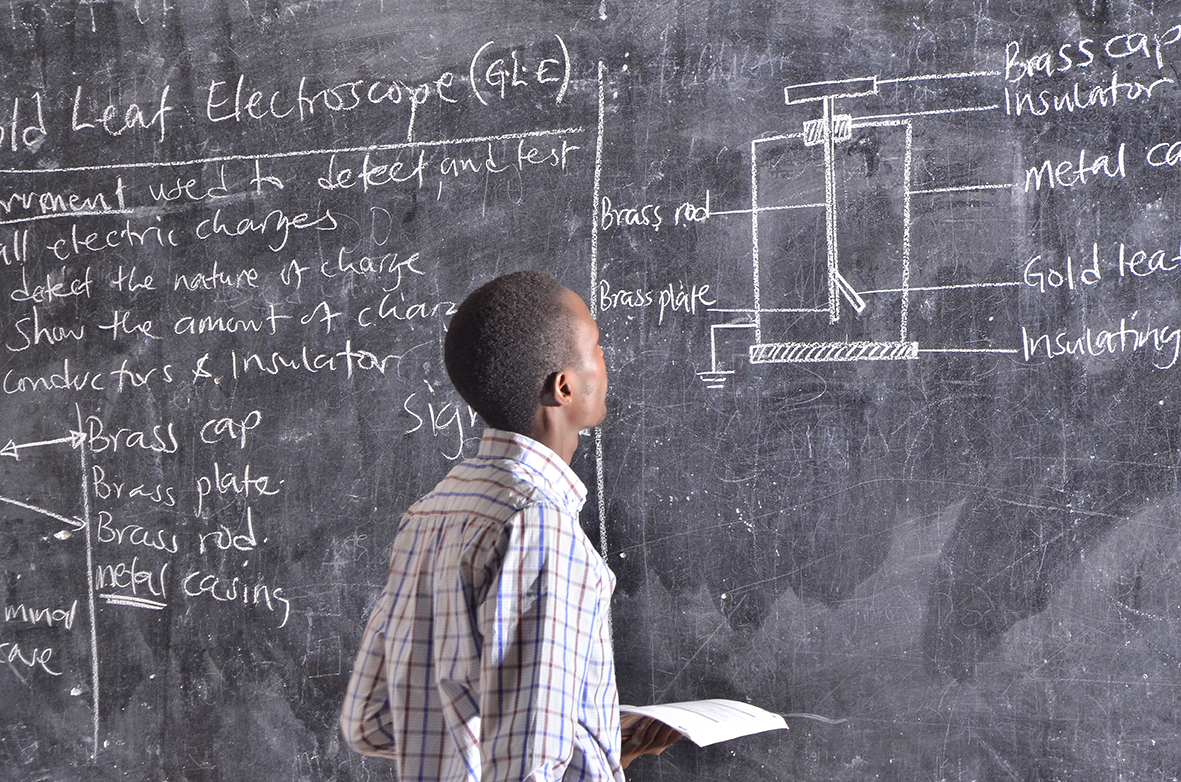 old Leaf Electroscope (GLE)
rument used to detect and test
all electric charges
detect the nature of charge
Show the amount of char
conductors & Insulator
Sign
Brass cap
Brass plate.
Brass rod.
metal casing
minal
care
Brass cap
Insulator
metal ca
Brass rod
Gold leaf
Brass plate
Insulating